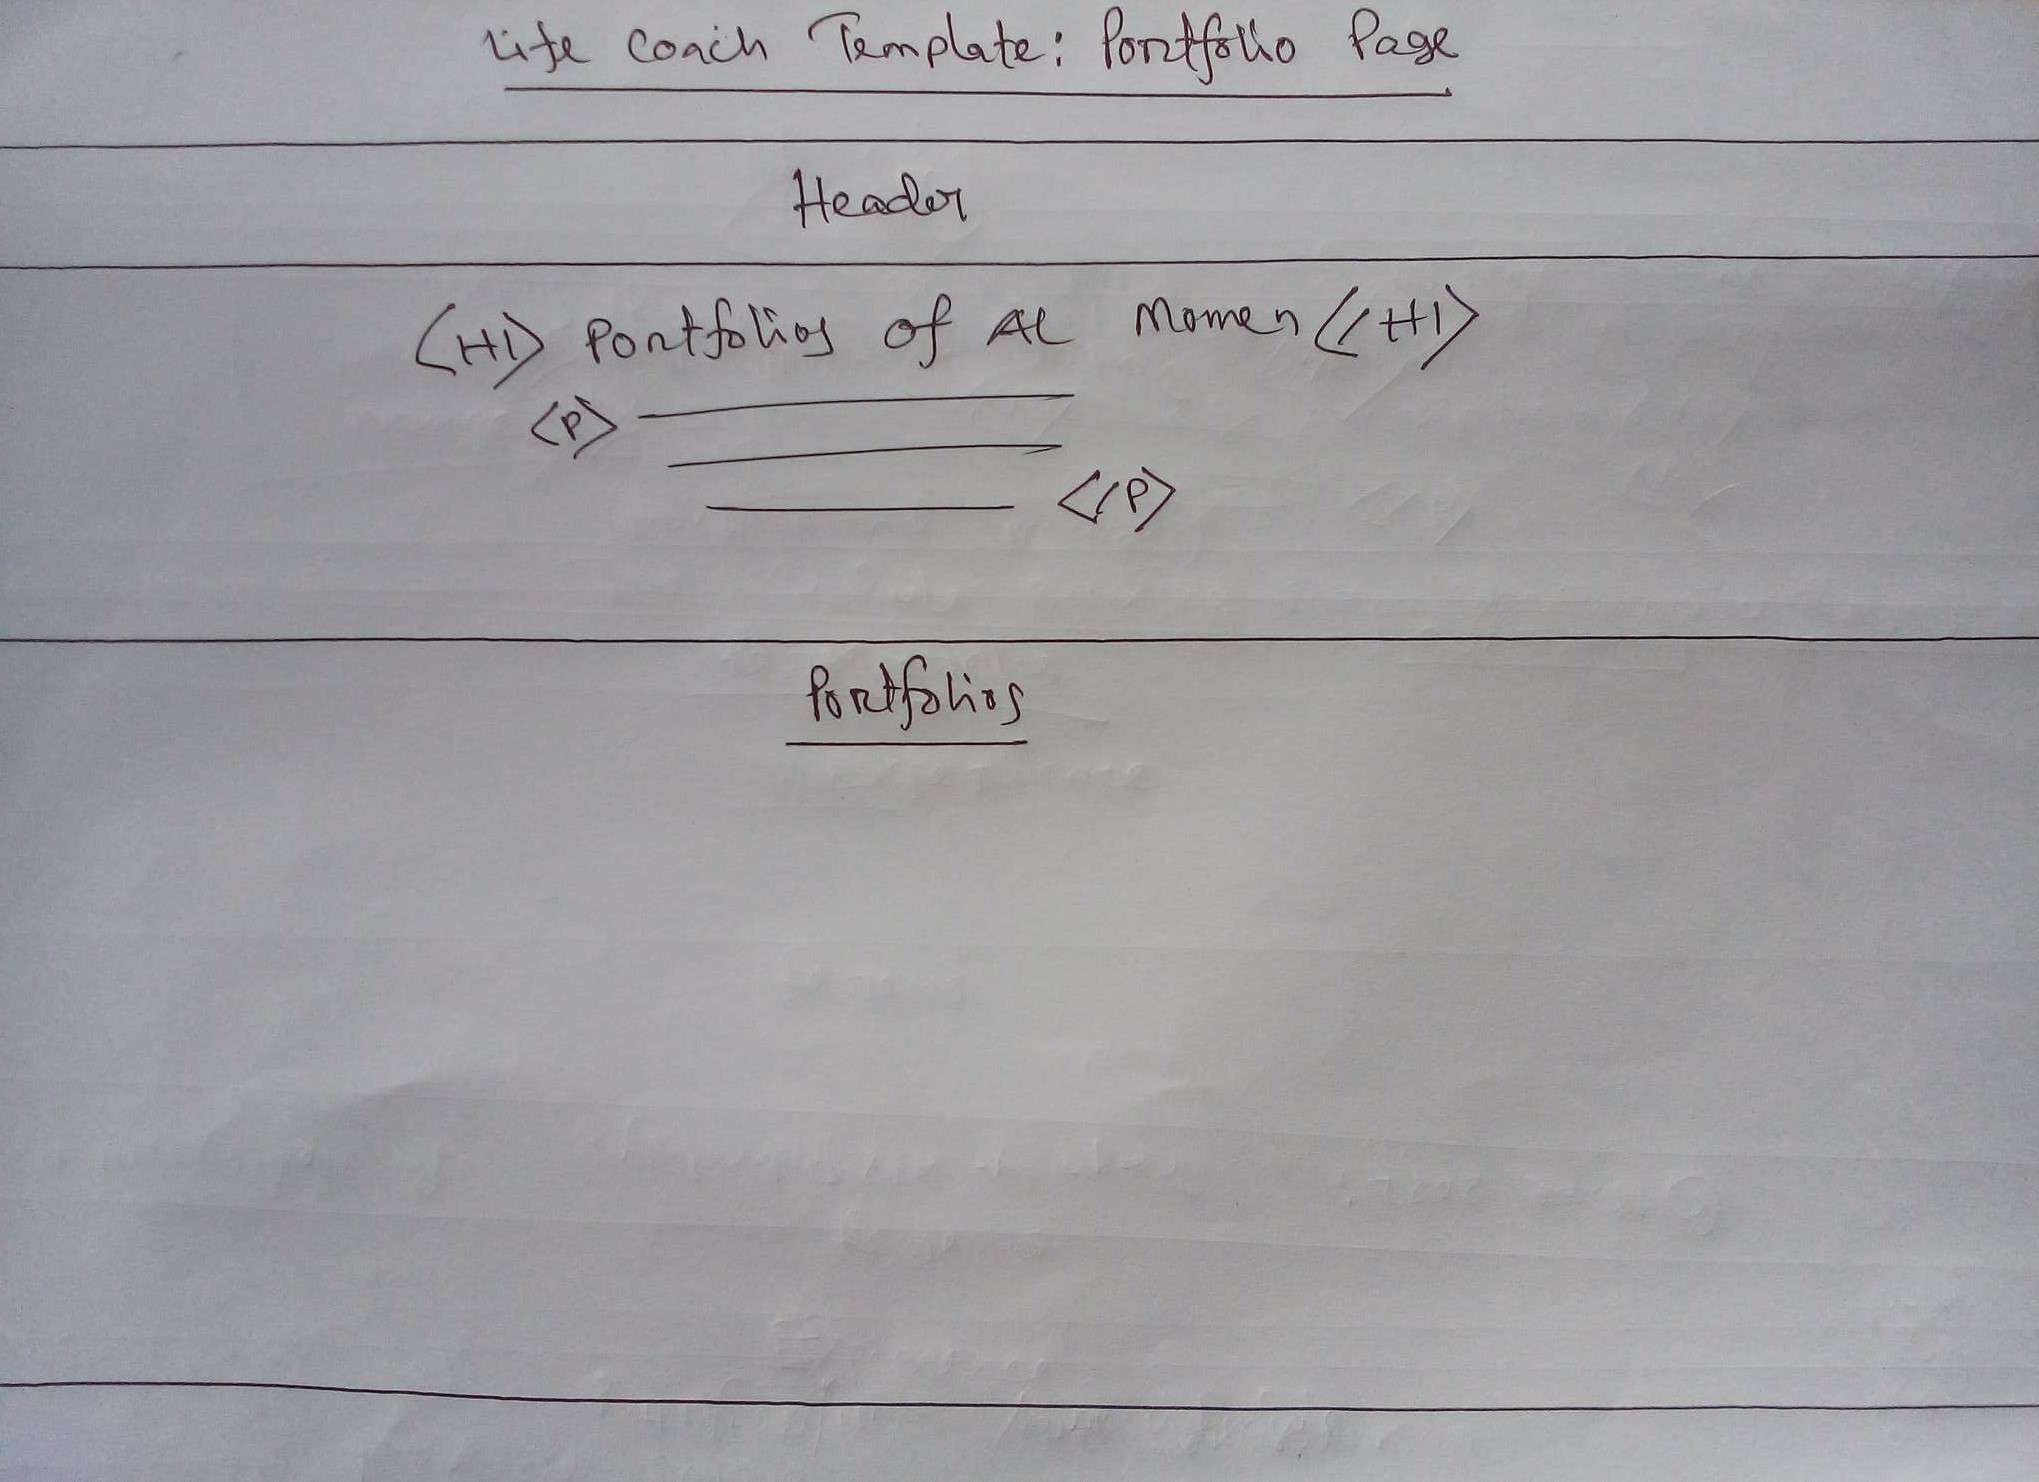 Life Coach Template: Portfolio Page
Header
<H1> Portfolios of Al Momen </H1>
<P>
</P>
Portfolios